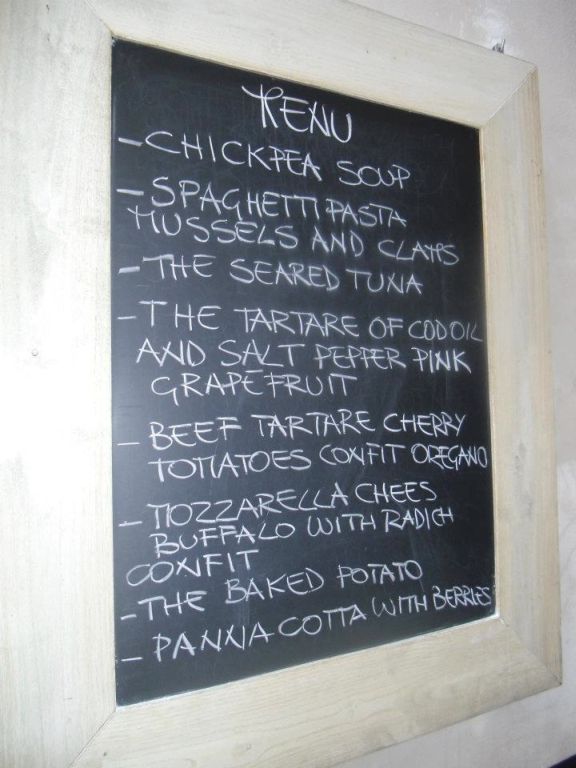 MENU
- CHICKPEA SOUP
- SPAGHETTI PASTA
MUSSELS AND CLAMS
- THE SEARED TUNA
- THE TARTARE OF COD OIL
AND SALT PEPPER PINK
GRAPEFRUIT
- BEEF TARTARE CHERRY
TOMATOES CONFIT OREGANO
- MOZZARELLA CHEES
BUFFALO WITH RADICH
CONFIT
- THE BAKED POTATO
- PANNA COTTA WITH BERRIES